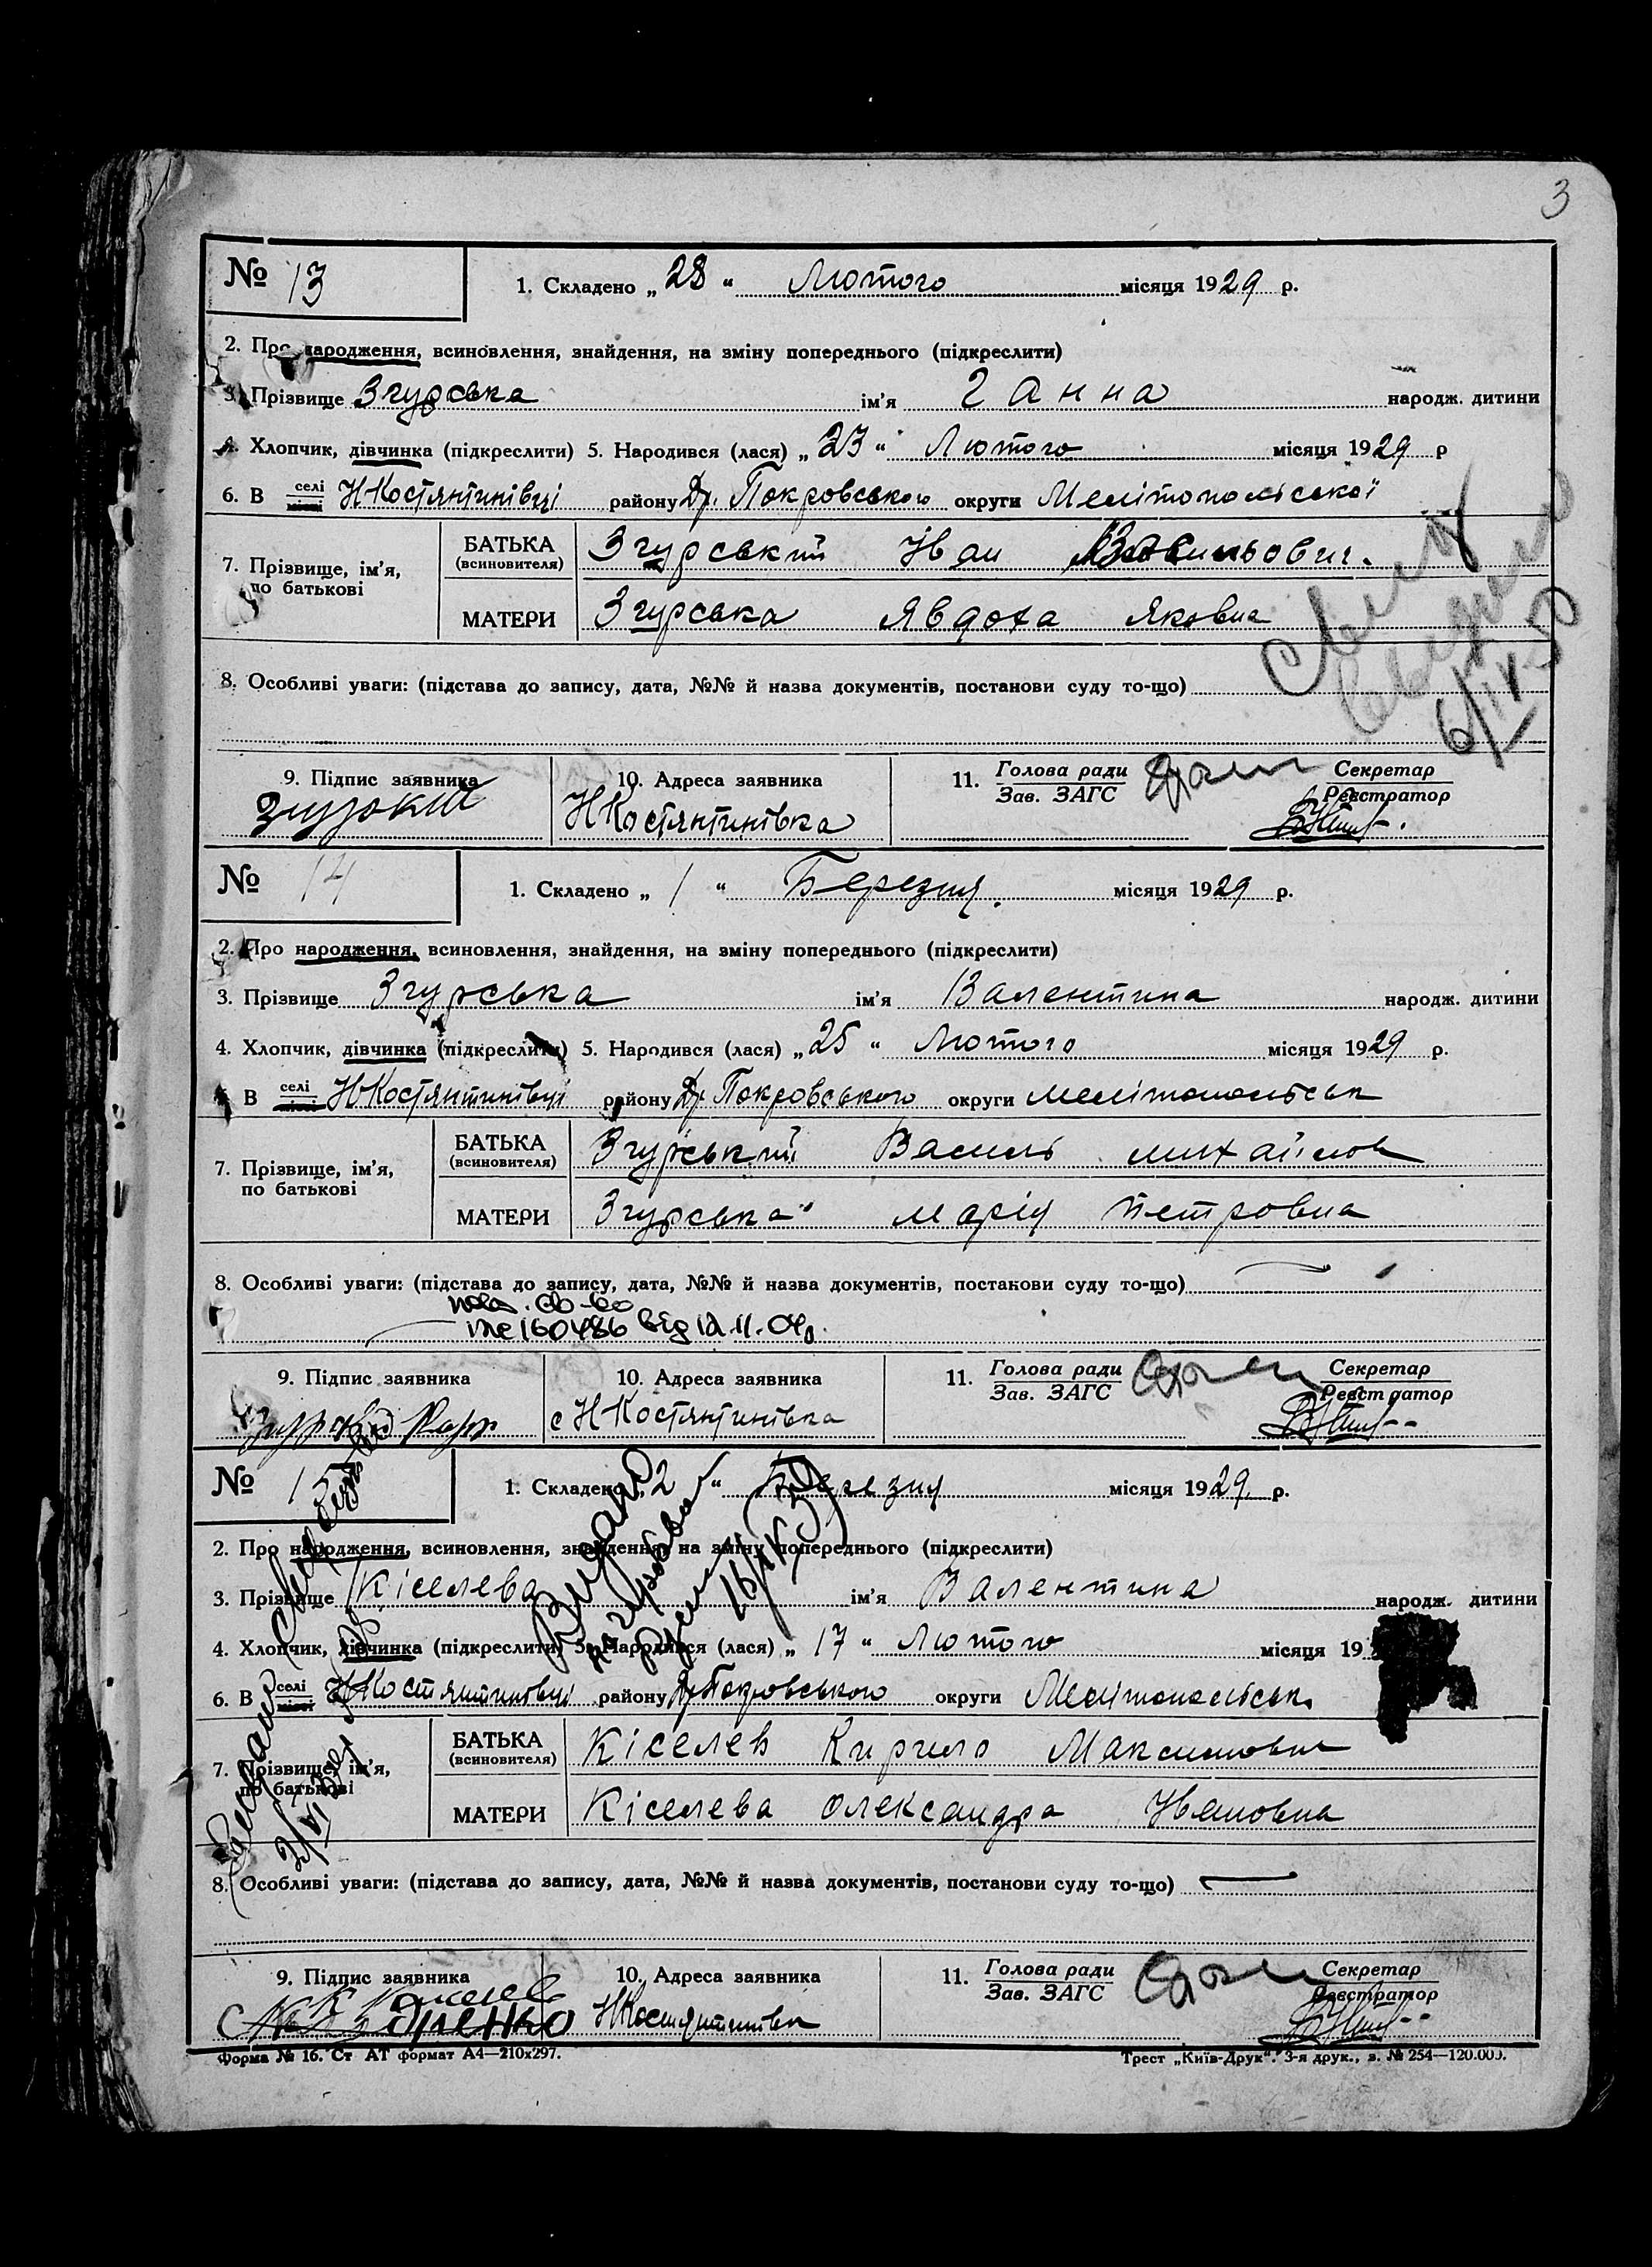 3
№ 13
1. Складено „28“ Лютого місяця 1929 р.
2. Про народження, всиновлення, знайдення, на зміну попереднього (підкреслити)
3. Прізвище Згурська ім'я Ганна народж. дитини
4. Хлопчик, дівчинка (підкреслити) 5. Народився (лася) „23“ Лютого місяця 1929 р
6. В селі місті НКостянтинівці району Др. Покровського округи Мелітопольської
7. Прізвище, ім'я, по батькові
БАТЬКА (всиновителя) Згурський Іван
МАТЕРИ Згурська Явдоха Яковна
8. Особливі уваги: (підстава до запису, дата, №№ й назва документів, постанови суду то-що)
6/IX-50
9. Підпис заявника
10. Адреса заявника
НКостянтинівка
11. Голова ради Зав. ЗАГС
Секретар Реєстратор
№ 14
1. Складено „1“ Березня. місяця 1929 р.
2. Про народження, всиновлення, знайдення, на зміну попереднього (підкреслити)
3. Прізвище Згурська ім'я Валентина народж. дитини
4. Хлопчик, дівчинка (підкреслити) 5. Народився (лася) „25“ Лютого місяця 1929 р.
В селі місті НКостянтинівці району Др. Покровського округи Мелітопольськ
7. Прізвище, ім'я, по батькові
БАТЬКА (всиновителя) Згурський Василь Михайлов
МАТЕРИ Згурська Марія Петровна
8. Особливі уваги: (підстава до запису, дата, №№ й назва документів, постанови суду то-що)
160486 від 12.11.04р.
9. Підпис заявника
10. Адреса заявника
с НКостянтинівка
11. Голова ради Зав. ЗАГС
Секретар Реєстратор
№ 15
1. Складено „2“ Березня місяця 1929 р.
2. Про народження, всиновлення, знайдення, на зміну попереднього (підкреслити)
3. Прізвище Кіселева ім'я Валентина народж. дитини
4. Хлопчик, дівчинка (підкреслити) 5. Народився (лася) „17“ Лютого місяця 19
6. В селі місті НКостянтинівці району Др Покровського округи Мелітопольськ
7. Прізвище, ім'я, по батькові
БАТЬКА (всиновителя) Кіселев Кирило Максимович
МАТЕРИ Кіселева Олександра Ивановна
8. Особливі уваги: (підстава до запису, дата, №№ й назва документів, постанови суду то-що)
9. Підпис заявника
10. Адреса заявника
НКостянтинівка
11. Голова ради Зав. ЗАГС
Секретар Реєстратор
Форма № 16. Ст АТ формат А4—210x297.
Трест „Київ-Друк“. 3-я друк., з. № 254—120.000.